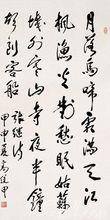 月落烏啼霜滿天江
楓漁火對愁眠姑蘇
城外寒山寺夜半鐘
聲到客船 張繼詩
甲申夏高運甲